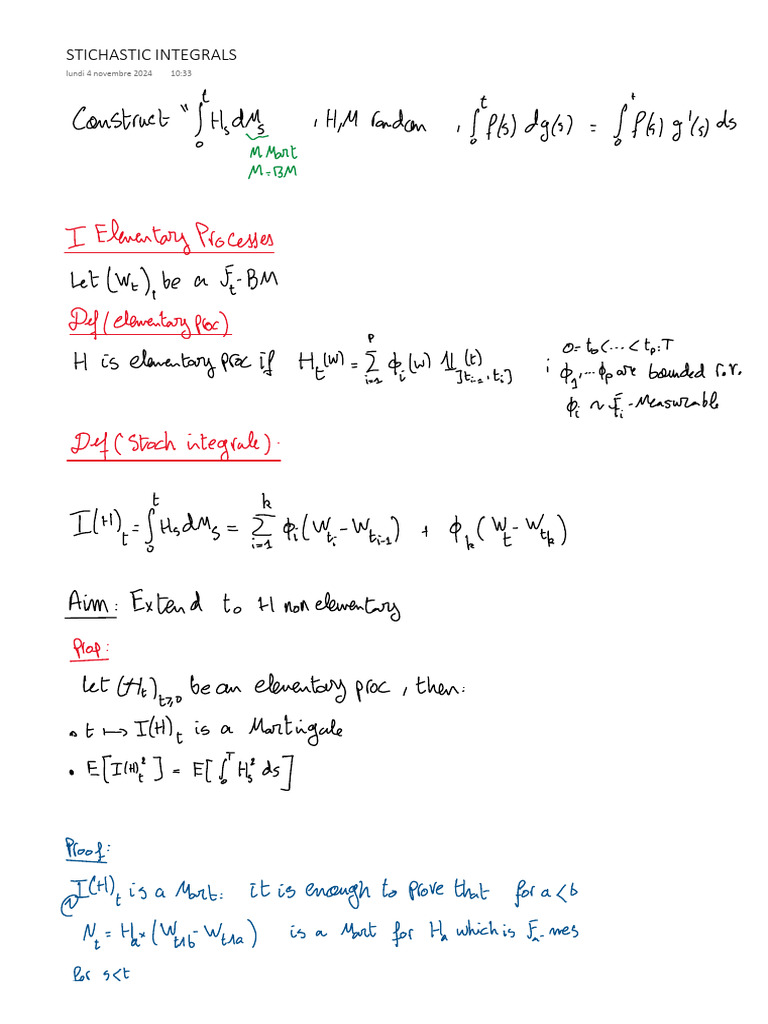 STICHASTIC INTEGRALS
lundi 4 novembre 2024 10:33
Construct "∫₀ᵗ H_s dM_s , H,M random , ∫₀ᵗ f(s) dg(s) = ∫₀ᵗ f(s) g'(s) ds
M Mart
M = BM
I Elementary Processes
Let (W_t), be a F_t-BM
Def (elementary proc)
H is elementary proc if H_t(w) = Σ_{i=1}^{p} ϕ_i(w) 1_{]t_{i-1}, t_i]}(t) ; 0=t_0<...<t_p=T
ϕ_1,...ϕ_p are bounded r.v.
ϕ_i ~ F_i-Measurable
Def (Stoch integrale).
I(H)_t = ∫₀ᵗ H_s dM_s = Σ_{i=1}^{k} ϕ_i (W_{t_i} - W_{t_{i-1}}) + ϕ_k (W_t - W_{t_k})
Aim: Extend to H non elementary
Prop:
Let (H_t)_{t≥0} be an elementary proc, then:
• t ↦ I(H)_t is a Martingale
• E[I(H)_t²] = E[∫₀ᵀ H_s² ds]
Proof:
① I(H)_t is a Mart: it is enough to prove that for a<b
N_t = H_a × (W_{t∧b} - W_{t∧a}) is a Mart for H_a which is F_a-mes
for s<t